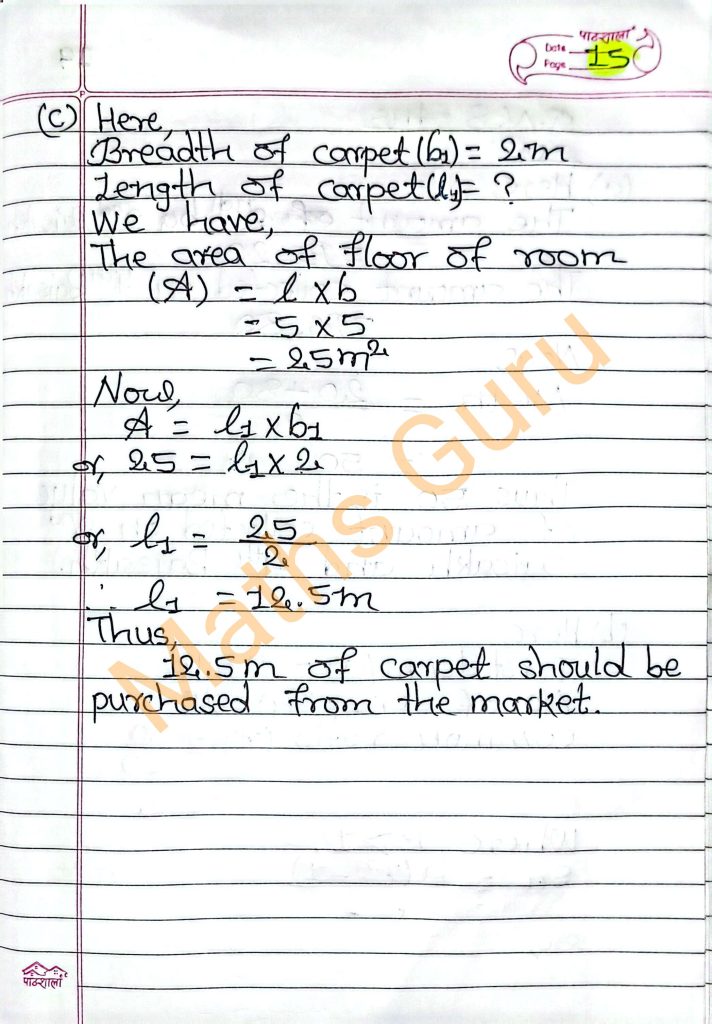 पाठशाला
Date
Page 15
(c) Here,
Breadth of carpet (b₁) = 2m
Length of carpet (l₁) = ?
We have,
The area of floor of room
(A) = l × b
= 5 × 5
= 25m²
Now,
A = l₁ × b₁
or, 25 = l₁ × 2
or, l₁ = 25/2
∴ l₁ = 12.5m
Thus,
12.5m of carpet should be
purchased from the market.
Maths Guru
पाठशाला